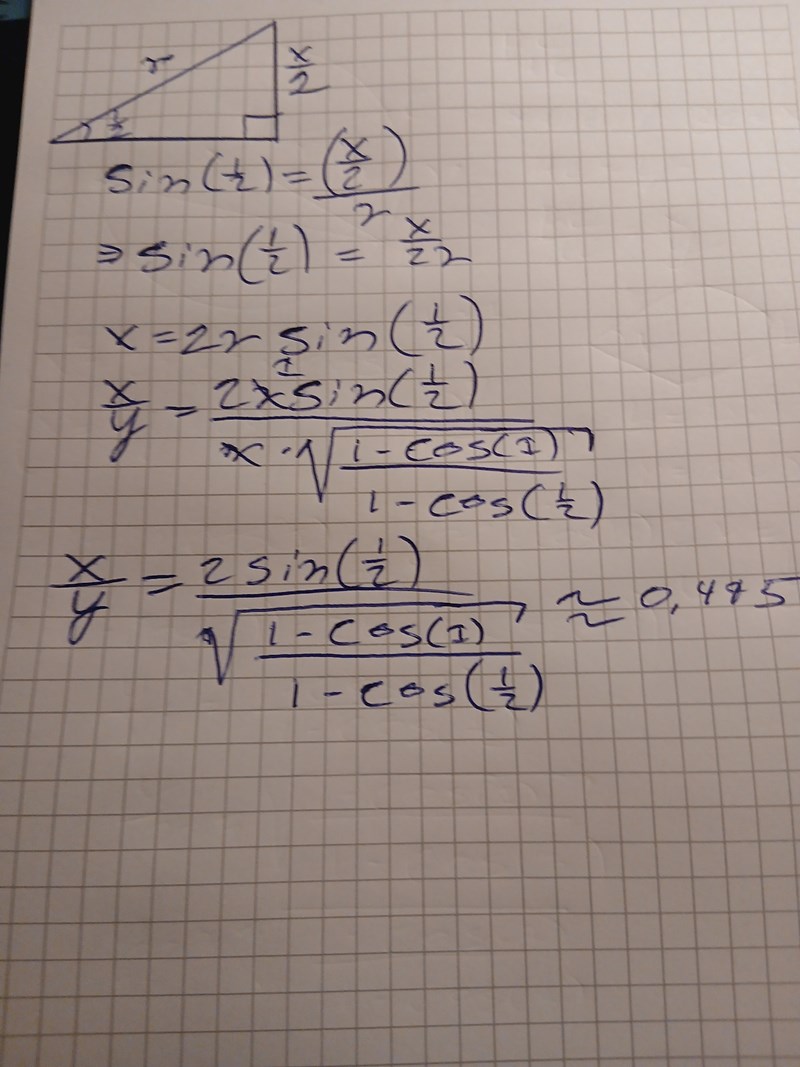 r
x/2
1/2
sin(1/2) = (x/2)/r
⇒ sin(1/2) = x/2r
x = 2r sin(1/2)
x/y = 2r sin(1/2) / r · √((1 - cos(1))/(1 - cos(1/2)))
x/y = 2 sin(1/2) / √((1 - cos(1))/(1 - cos(1/2))) ≈ 0,495